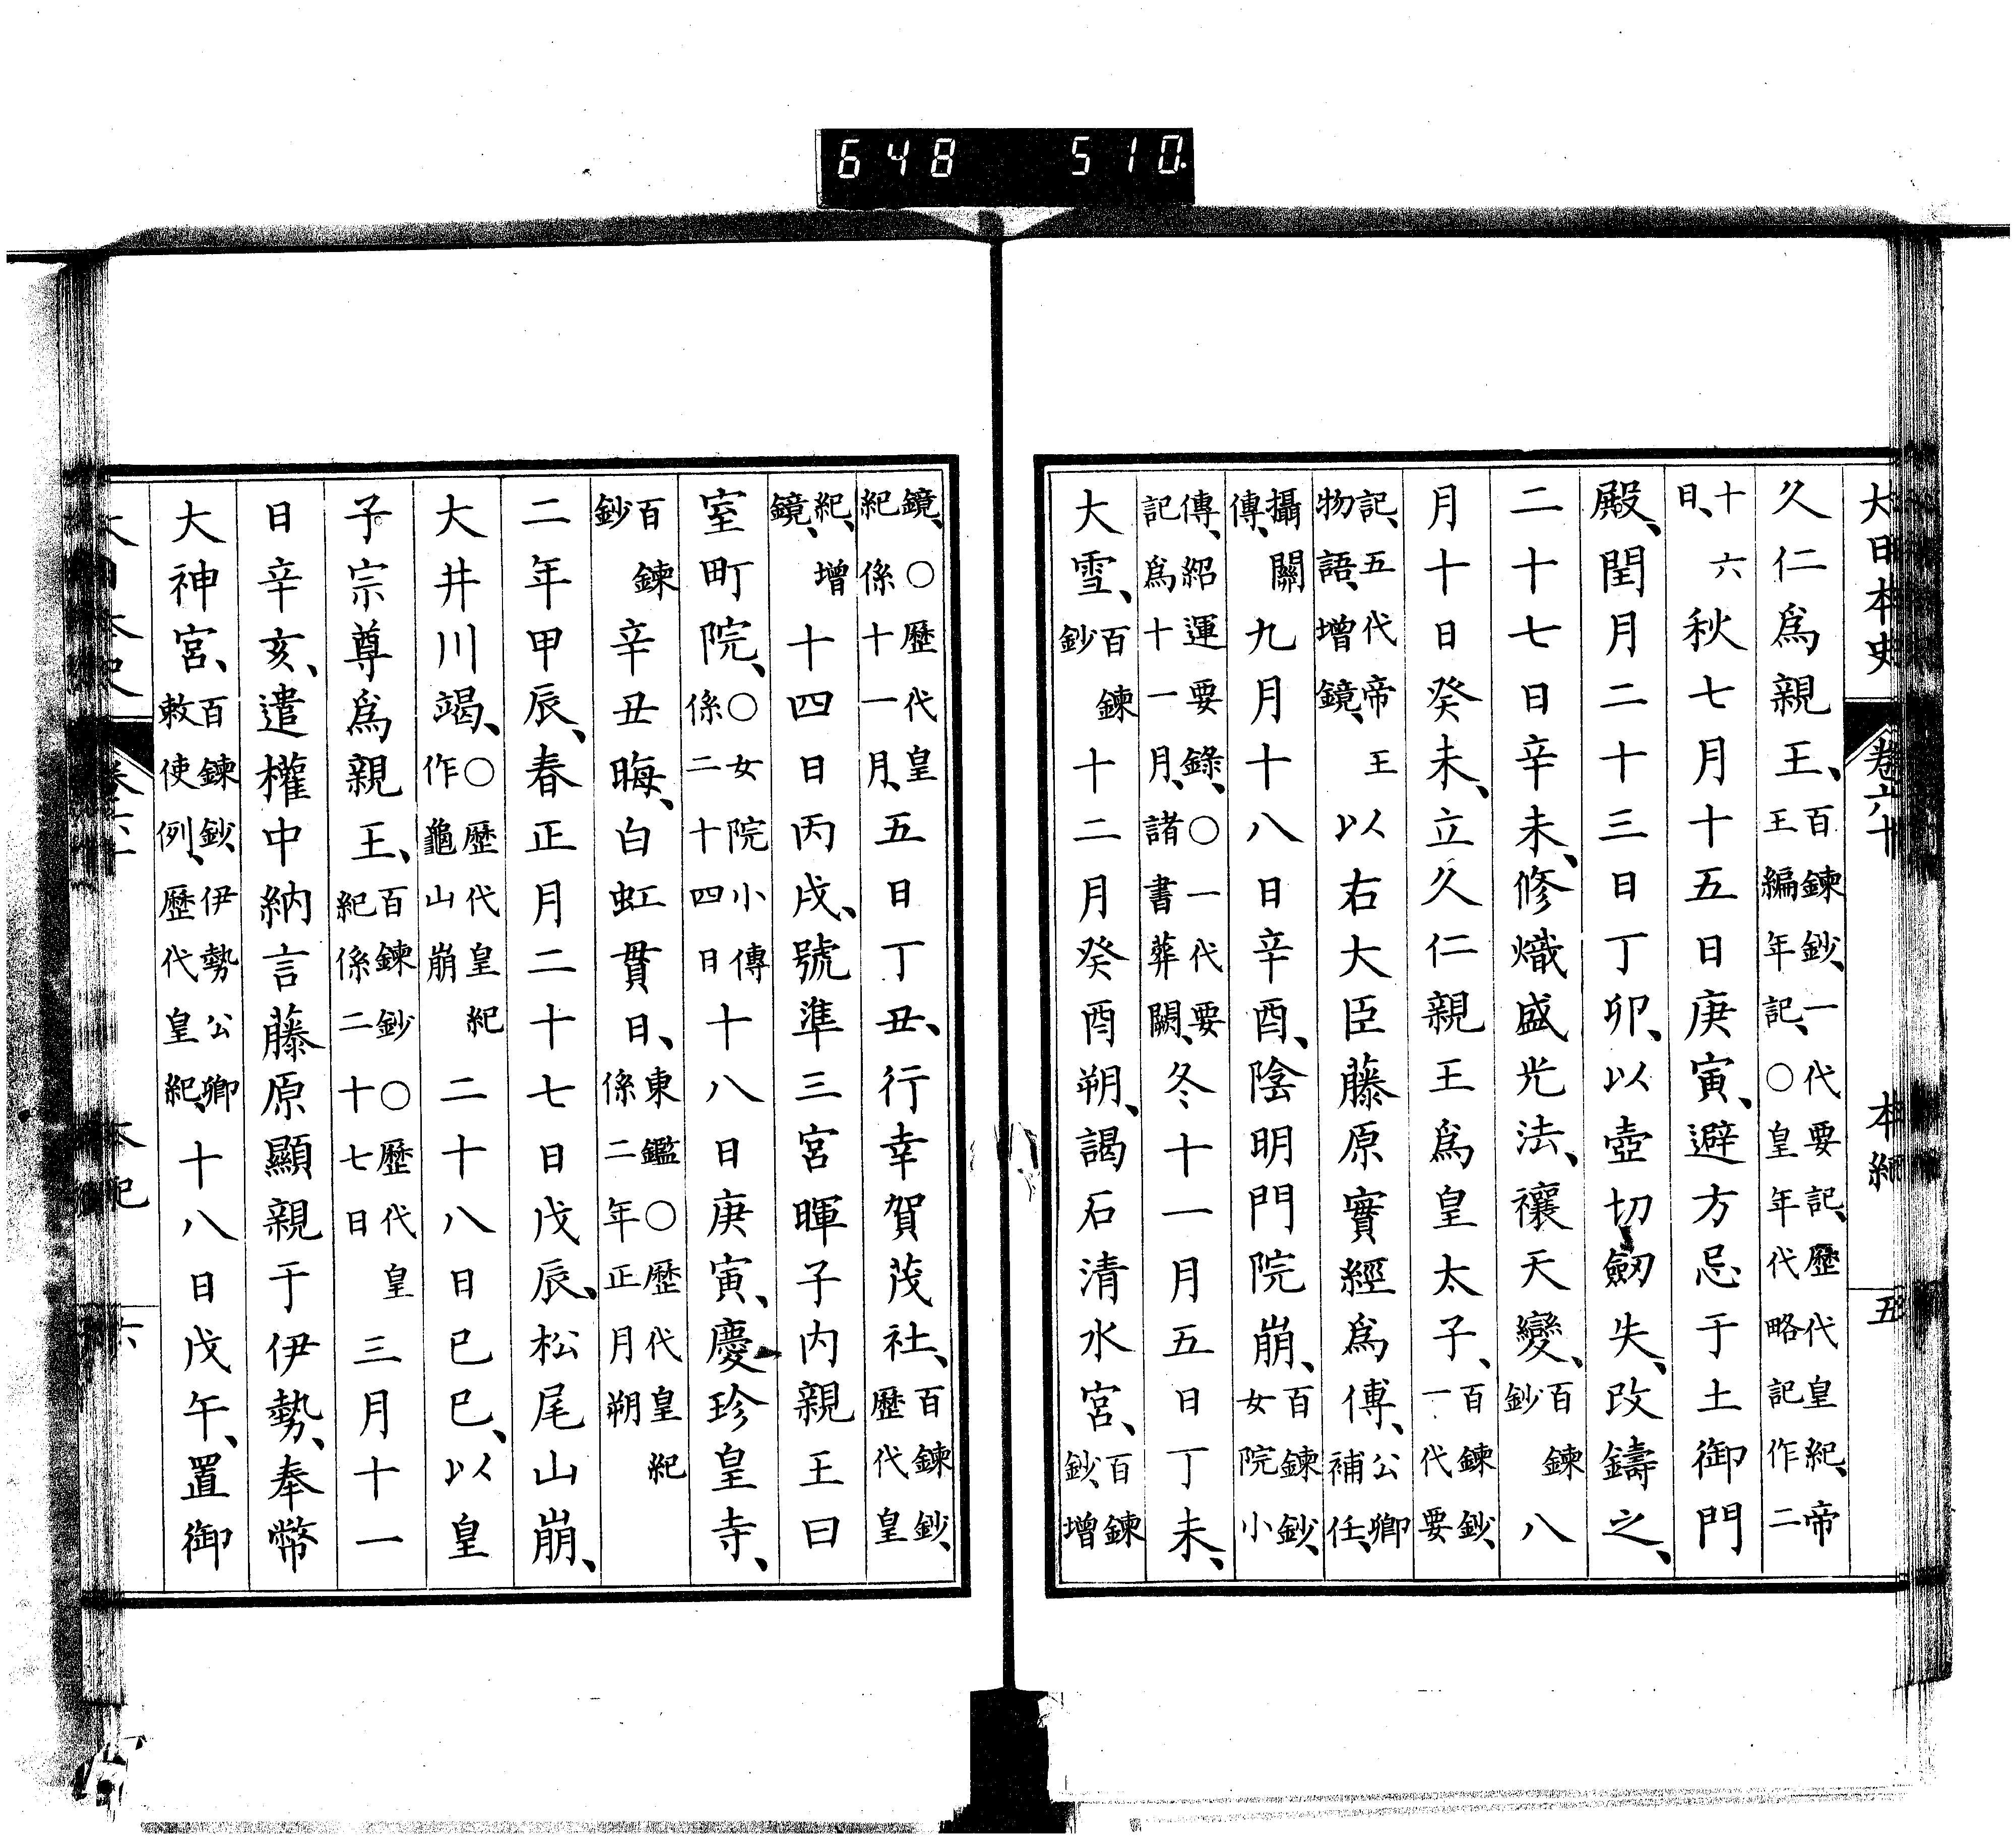 648 510.
大日本史 卷六十 本紀 五
久仁爲親王、百鍊鈔、一代要記、歷代皇紀、帝王編年記、○皇年代略記作二
十六日、秋七月十五日庚寅、避方忌于土御門
殿、閏月二十三日丁卯、以壺切劒失、改鑄之、
二十七日辛未、修熾盛光法、禳天變、百鍊鈔八
月十日癸未、立久仁親王爲皇太子、百鍊鈔、一代要
記、五代帝王物語、增鏡、以右大臣藤原實經爲傅、公卿補任、
攝關傳、九月十八日辛酉、陰明門院崩、百鍊鈔、女院小
傳、紹運要錄、○一代要記爲十一月、諸書葬闕、冬十一月五日丁未、
大雪、百鍊鈔十二月癸酉朔、謁石清水宮、百鍊鈔、增
鏡、○歷代皇紀係十一月、五日丁丑、行幸賀茂社、百鍊鈔、歷代皇
紀、增鏡、十四日丙戌、號準三宮暉子内親王曰
室町院、○女院小傳係二十四日十八日庚寅、慶珍皇寺、
百鍊鈔辛丑晦、白虹貫日、東鑑○歷代皇紀係二年正月朔
二年甲辰、春正月二十七日戊辰、松尾山崩、
大井川竭、○歷代皇紀作龜山崩二十八日己巳、以皇
子宗尊爲親王、百鍊鈔○歷代皇紀係二十七日三月十一
日辛亥、遣權中納言藤原顯親于伊勢、奉幣
大神宮、百鍊鈔、伊勢公卿敕使例、歷代皇紀、十八日戊午、置御
大日本史 卷六十 本紀 六